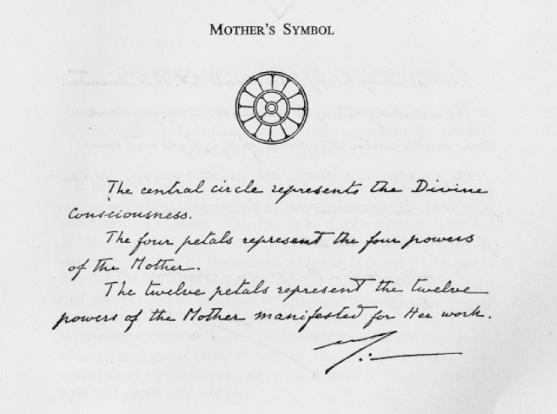 MOTHER'S SYMBOL
The central circle represents the Divine
Consciousness.
The four petals represent the four powers
of the Mother.
The twelve petals represent the twelve
powers of the Mother manifested for Her work.